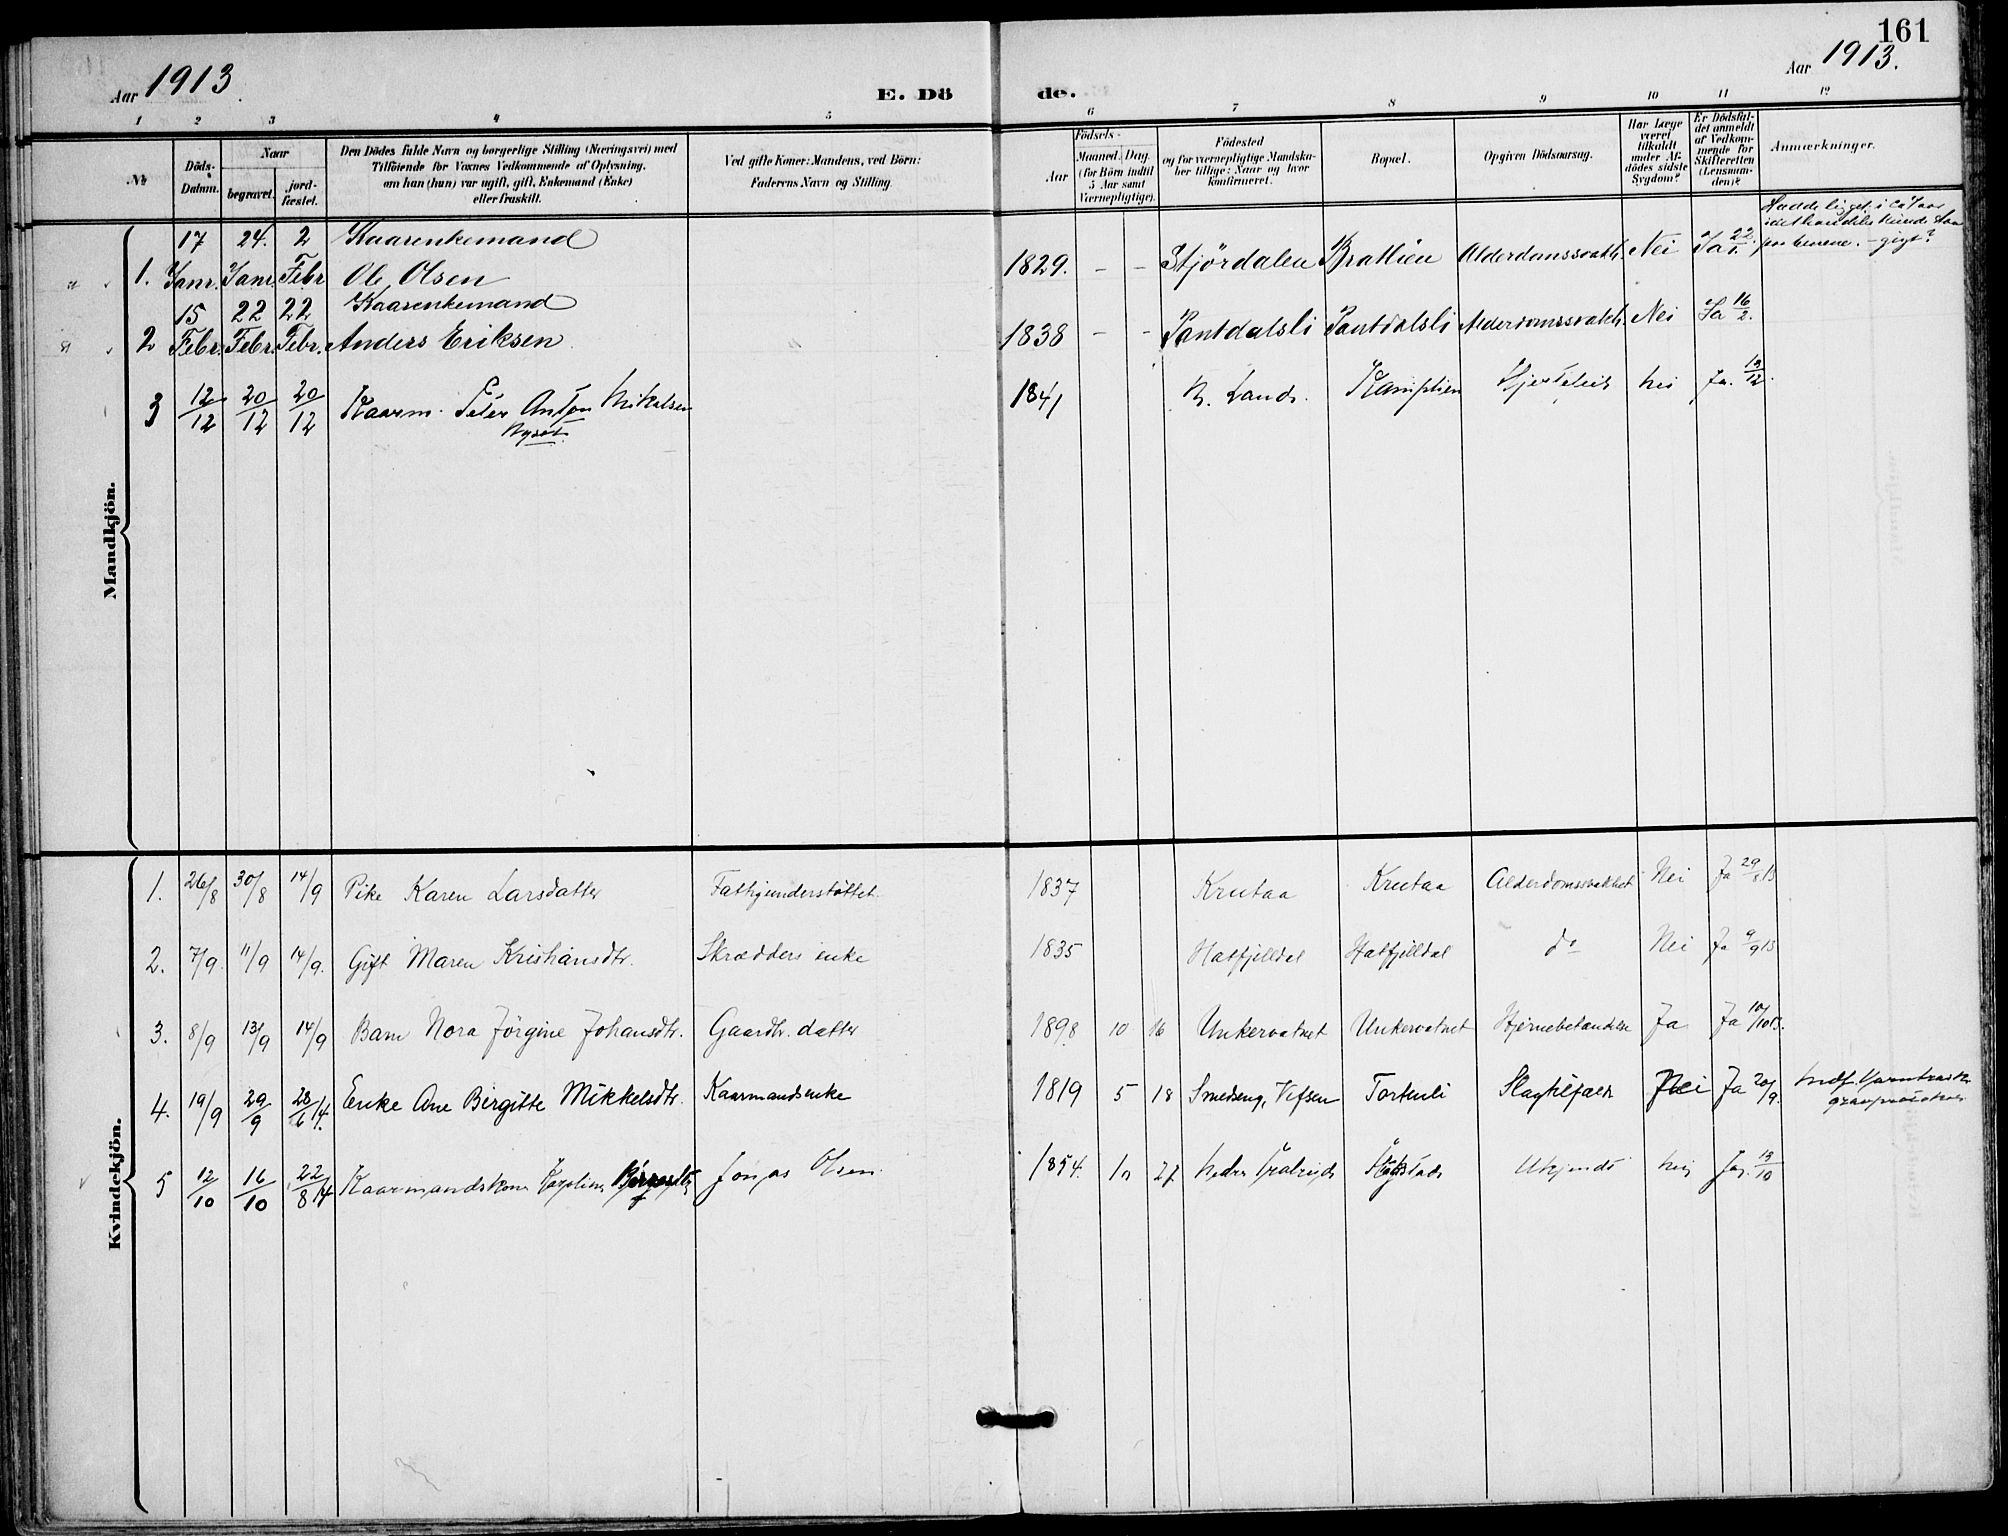 161
Aar 1913.
E. Döde.
Aar 1913.
1 2 3 4 5 6 7 8 9 10 11 12
№
Döds-Datum.
Naar
begravet.
jord-fæstet.
Den Dödes fulde Navn og borgerlige Stilling (Næringsvei) med
Tilföiende for Voxnes Vedkommende af Oplysning,
om han (hun) var ugift, gift, Enkemand (Enke)
eller fraskilt.
Ved gifte Koner: Mandens, ved Börn:
Faderens Navn og Stilling.
Födsels-
Aar
Maaned. Dag.
(for Börn indtil
5 Aar samt
Værnepligtige).
Födested
og for værnepligtige Mandska-
ber tillige: Naar og hvor
konfirmeret.
Bopæl.
Opgiven Dödsaarsag.
Har Læge
været
tilkaldt
under Af-
dödes sidste
Sygdom?
Er Dödsfal-
det anmeldt
af Vedkom-
mende for
Skifteretten
(Lensman-
den)?
Anmærkninger.
Mandkjön.
1. 17 Janr. 24. Janr. 2 Febr Kaarenkemand
Ole Olsen 1829. - - Stjördalen Bratlien Alderdomssvakh. Nei Ja 22/1.
2 15 Febr. 22 Febr. 22 Febr. Kaarenkemand
Anders Eriksen 1838 - - Pantdalsli Pantdalsli Alderdomssvakh. Nei Ja 16/2.
3 12/12 20/12 20/12 Kaarm. Peter Anton Mikalsen
1841 N. Land. nei Ja. 13/12.
Kvindekjön.
1. 26/8 30/8 14/9 Pike Karen Larsdatter Fattigunderstøttet. 1837 Krutaa Krutaa Alderdomssvakhet Nei Ja 29/8 13
2. 7/9. 11/9 14/9. Gift Maren Kristiansdtr. Skrædders enke 1835 Hatfjelldal Hatfjelldal do Nei Ja 9/9 13
3. 8/9 13/9 14/9 Barn Nora Jörgine Johansdtr. Gaardbr. datter 1898 10 16 Unkervatnet Unkervatnet Hjernebetændelse Ja Ja 10/10 13.
4. 19/9 29/9 28/6 14. Enke Ane Birgitte Mikkelsdtr. Kaarmandsenke 1819 5 18 Smedseng, Vefsen Tortenli Slagtilfælde Nei Ja 20/9.
5 12/10 16/10 22/8 14 Kaarmandskone Karoline Jonas Olsen 1854. 10 27 Nedre Ukjendt nei Ja. 13/10